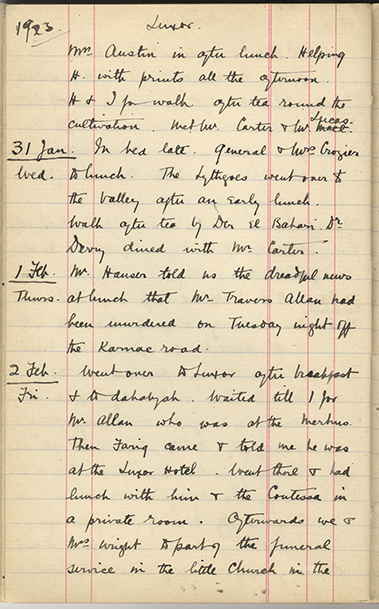 1923. Luxor.
Mrs. Austin in after lunch. Helping
H. with prints all the afternoon.
H & I for walk after tea round the
cultivation. Met Mr. Carter & Mr. Lucas.
31 Jan. In bed late. General & Mrs Crozier
Wed. to lunch. The Lythgoes went over to
the Valley after an early lunch.
Walk after tea by Der El Bahari. Dr
Derry dined with Mr. Carter.
1 Feb. Mr. Hauser told us the dreadful news
Thurs. at lunch that Mr Travers Allan had
been murdered on Tuesday night off
the Karnac road.
2 Feb. Went over to Luxor after breakfast
Fri. & to dahabyah. Waited till 1 for
Mr Allan who was at the
Then Farig came & told me he was
at the Luxor Hotel. Went there & had
lunch with him & the Contessa in
a private room. Afterwards we &
Mrs Wright to part of the funeral
service in the little Church in the